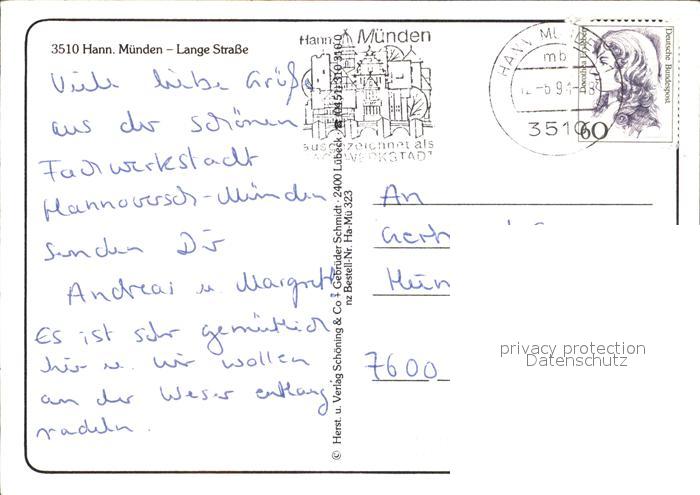 3510 Hann. Münden – Lange Straße
Viele liebe Grüße
aus der schönen
Fachwerkstadt
Hannoversch-Münden
senden Dir
Andreas u. Margrett
Es ist sehr gemütlich
hier u. wir wollen
an der Weser entlang
radeln.
© Herst. u. Verlag Schöning & Co + Gebrüder Schmidt · 2400 Lübeck
nz Bestell-Nr. Ha-Mü 323
Hann. Münden
ausgezeichnet als
FACHWERKSTADT
HANN. MÜ
mb
3510
Deutsche Bundespost
60
An
7600
privacy protection
Datenschutz